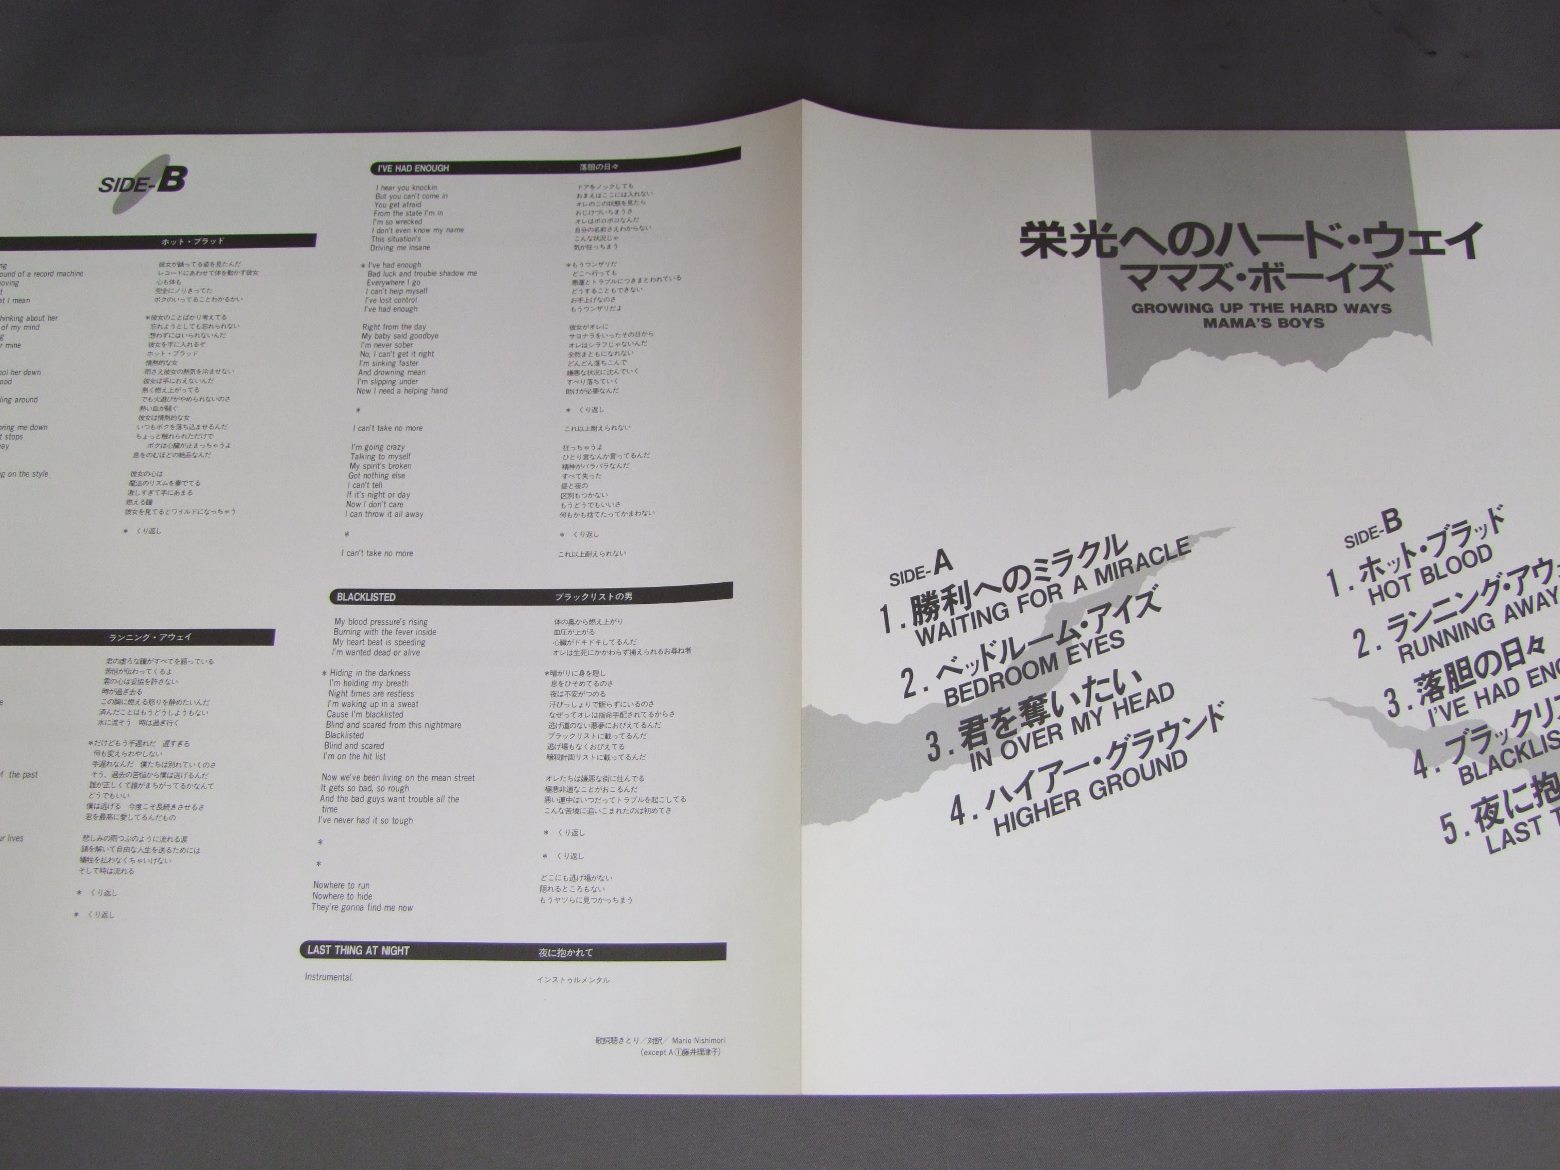 SIDE-B
ホット・ブラッド
ound of a record machine
oving
t I mean
hinking about her
of my mind
r mine
ool her down
ood
ling around
oring me down
t stops
ay
ng on the style
彼女が踊ってる姿を見たんだ
レコードにあわせて体を動かす彼女
心も体も
完全にノリきってた
ボクのいってることわかるかい
*彼女のことばかり考えてる
忘れようとしても忘れられない
想わずにはいられないんだ
彼女を手に入れるぞ
ホット・ブラッド
情熱的な女
彼女は手におえないんだ
熱く燃え上がってる
でも火遊びがやめられないのさ
熱い血が騒ぐ
彼女は情熱的な女
いつもボクを落ち込ませるんだ
ちょっと触れられただけで
ボクは心臓が止まっちゃうよ
息をのむほどの絶品なんだ
彼女の心は
魔法のリズムを奏でてる
激しすぎて手にあまる
燃える瞳
彼女を見てるとワイルドになっちゃう
* くり返し
ランニング・アウェイ
of the past
ur lives
君の虚ろな瞳がすべてを語っている
苦悩が伝わってくるよ
君の心は妥協を許さない
時が過ぎ去る
この胸に燃える怒りを静めたいんだ
済んだことはもうどうしようもない
水に流そう 時は過ぎ行く
*だけどもう手遅れだ 遅すぎる
何も変えられやしない
手遅れなんだ 僕たちは別れていくのさ
そう、過去の苦悩から僕は逃げるんだ
誰が正しくて誰がまちがってるかなんて
どうでもいい
僕は逃げる 今度こそ長続きさせるさ
君を最高に愛してるんだもの
悲しみの雨つぶのように流れる涙
鎖を解いて自由な人生を送るためには
犠牲を払わなくちゃいけない
そして時は流れる
* くり返し
* くり返し
I'VE HAD ENOUGH
落胆の日々
I hear you knockin
But you can't come in
You get afraid
From the state I'm in
I'm so wrecked
I don't even know my name
This situation's
Driving me insane
* I've had enough
Bad luck and trouble shadow me
Everywhere I go
I can't help myself
I've lost control
I've had enough
Right from the day
My baby said goodbye
I'm never sober
No, I can't get it right
I'm sinking faster
And drowning mean
I'm slipping under
Now I need a helping hand
*
I can't take no more
I'm going crazy
Talking to myself
My spirit's broken
Got nothing else
I can't tell
If it's night or day
Now I don't care
I can throw it all away
*
I can't take no more
ドアをノックしても
おまえはここには入れない
オレのこの状態を見たら
おじけづいちまうさ
オレはボロボロなんだ
自分の名前さえわからない
こんな状況じゃ
気が狂っちまう
*もうウンザリだ
どこへ行っても
悪運とトラブルにつきまとわれている
どうすることもできない
お手上げなのさ
もうウンザリだよ
彼女がオレに
サヨナラをいったその日から
オレはシラフじゃないんだ
全然まともになれない
どんどん落ちこんで
嫌悪な状況に沈んでいく
すべり落ちていく
助けが必要なんだ
* くり返し
これ以上耐えられない
狂っちゃうよ
ひとり言なんか言ってるんだ
精神がバラバラなんだ
すべて失った
昼と夜の
区別もつかない
もうどうでもいいさ
何もかも捨てたってかまわない
* くり返し
これ以上耐えられない
BLACKLISTED
ブラックリストの男
My blood pressure's rising
Burning with the fever inside
My heart beat is speeding
I'm wanted dead or alive
* Hiding in the darkness
I'm holding my breath
Night times are restless
I'm waking up in a sweat
Cause I'm blacklisted
Blind and scared from this nightmare
Blacklisted
Blind and scared
I'm on the hit list
Now we've been living on the mean street
It gets so bad, so rough
And the bad guys want trouble all the
time
I've never had it so tough
*
*
Nowhere to run
Nowhere to hide
They're gonna find me now
体の奥から燃え上がり
血圧が上がる
心臓がドキドキしてるんだ
オレは生死にかかわらず捕えられるお尋ね者
*暗がりに身を隠し
息をひそめてるのさ
夜は不安がつのる
汗びっしょりで眠らずにいるのさ
なぜってオレは指命手配されてるからさ
逃げ道のない悪夢におびえてるんだ
ブラックリストに載ってるんだ
逃げ場もなくおびえてる
暗殺計画リストに載ってるんだ
オレたちは嫌悪な街に住んでる
極悪非道なことがおこるんだ
悪い連中はいつだってトラブルを起こしてる
こんな苦境に追いこまれたのは初めてさ
* くり返し
* くり返し
どこにも逃げ場がない
隠れるところもない
もうヤツらに見つかっちまう
LAST THING AT NIGHT
夜に抱かれて
Instrumental.
インストゥルメンタル
歌詞聴きとり/対訳/ Mario Nishimori
(except A①藤井理津子)
栄光へのハード・ウェイ
ママズ・ボーイズ
GROWING UP THE HARD WAYS
MAMA'S BOYS
SIDE-A
1. 勝利へのミラクル
WAITING FOR A MIRACLE
2. ベッドルーム・アイズ
BEDROOM EYES
3. 君を奪いたい
IN OVER MY HEAD
4. ハイアー・グラウンド
HIGHER GROUND
SIDE-B
1. ホット・ブラッド
HOT BLOOD
2. ランニング・アウ
RUNNING AWAY
3. 落胆の日々
I'VE HAD ENO
4. ブラックリ
BLACKLIS
5. 夜に抱
LAST T